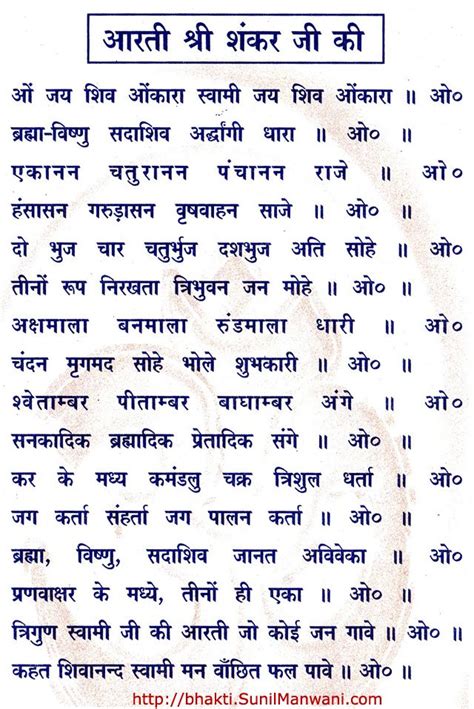 आरती श्री शंकर जी की
ओं जय शिव ओंकारा स्वामी जय शिव ओंकारा ॥ ओ०
ब्रह्मा-विष्णु सदाशिव अर्द्धांगी धारा ॥ ओ० ॥
एकानन चतुरानन पंचानन राजे ॥ ओ०
हंसासन गरुड़ासन वृषवाहन साजे ॥ ओ० ॥
दो भुज चार चतुर्भुज दशभुज अति सोहे ॥ ओ०
तीनों रूप निरखता त्रिभुवन जन मोहे ॥ ओ० ॥
अक्षमाला बनमाला रुंडमाला धारी ॥ ओ०
चंदन मृगमद सोहे भोले शुभकारी ॥ ओ० ॥
श्वेताम्बर पीताम्बर बाघाम्बर अंगे ॥ ओ०
सनकादिक ब्रह्मादिक प्रेतादिक संगे ॥ ओ० ॥
कर के मध्य कमंडलु चक्र त्रिशुल धर्ता ॥ ओ०
जग कर्ता संहर्ता जग पालन कर्ता ॥ ओ० ॥
ब्रह्मा, विष्णु, सदाशिव जानत अविवेका ॥ ओ०
प्रणवाक्षर के मध्ये, तीनों ही एका ॥ ओ० ॥
त्रिगुण स्वामी जी की आरती जो कोई जन गावे ॥ ओ० ॥
कहत शिवानन्द स्वामी मन वाँछित फल पावे ॥ ओ० ॥
http://bhakti.SunilManwani.com